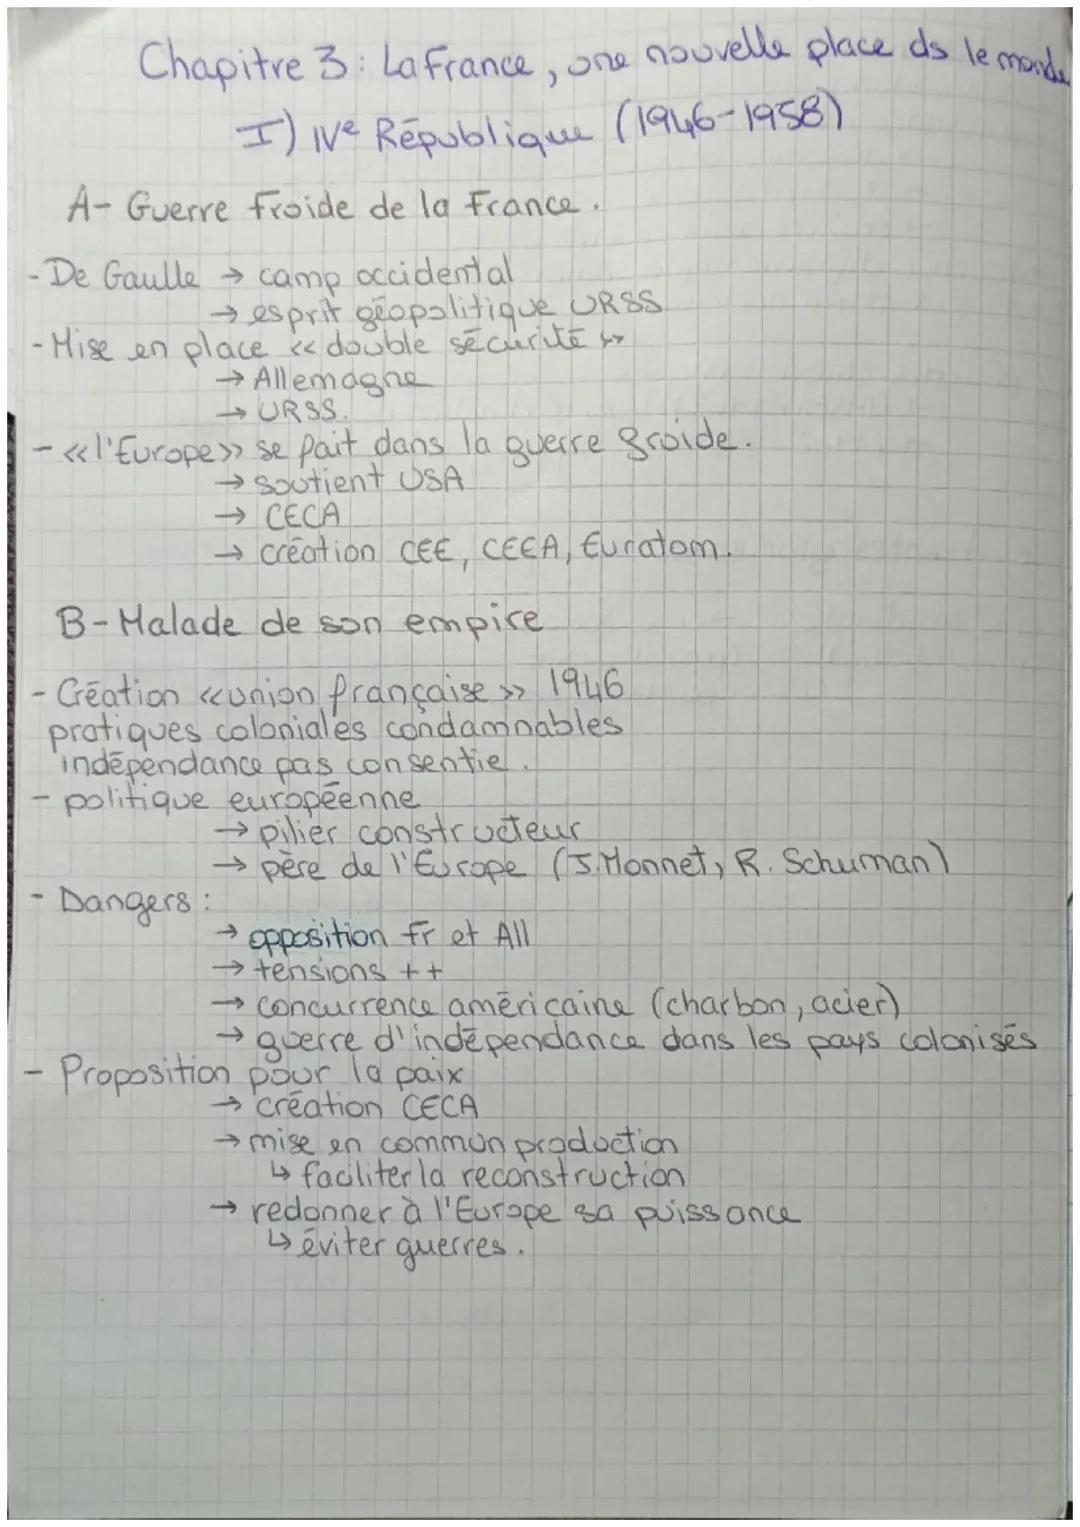 Chapitre 3 : La France, une nouvelle place ds le monde
I) IVe République (1946-1958)
A- Guerre froide de la France.
- De Gaulle → camp occidental
→ esprit géopolitique URSS
- Mise en place << double sécurité >>
→ Allemagne
→ URSS.
- << l'Europe >> se fait dans la guerre froide.
→ soutient USA
→ CECA
→ création CEE, CEEA, Euratom.
B- Malade de son empire
- Création << union française >> 1946
pratiques coloniales condamnables
indépendance pas consentie.
- politique européenne
→ pilier constructeur
→ père de l'Europe (J. Monnet, R. Schuman)
- Dangers :
→ opposition fr et All
→ tensions ++
→ concurrence américaine (charbon, acier)
→ guerre d'indépendance dans les pays colonisés
- Proposition pour la paix
→ création CECA
→ mise en commun production
↳ faciliter la reconstruction
→ redonner à l'Europe sa puissance
↳ éviter guerres.